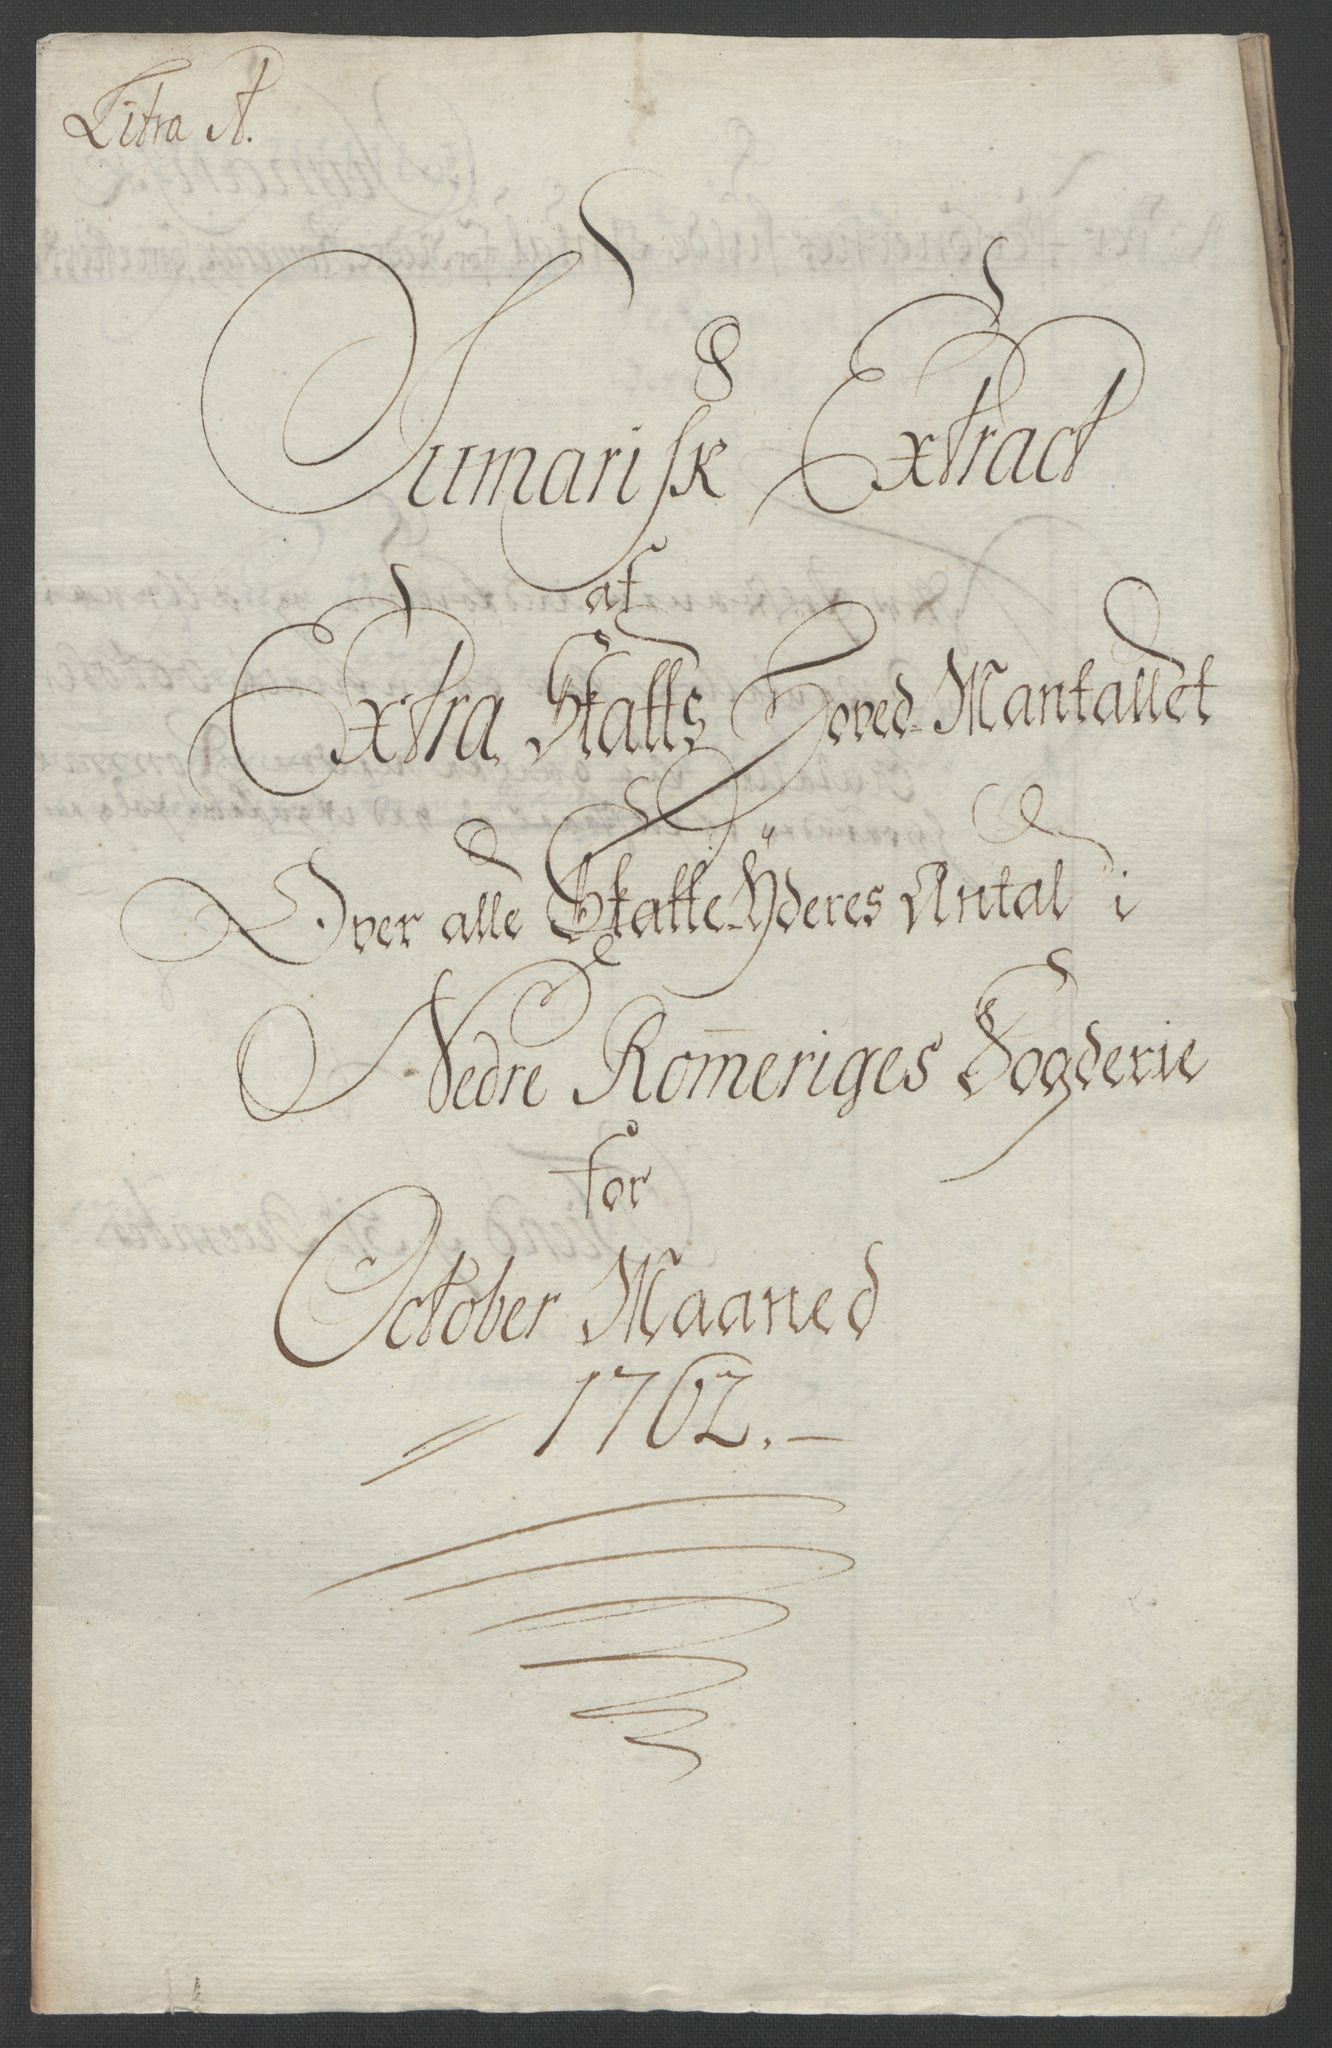 Litra A.
Sumarisk Extract
af
Extra Skatts Hoved-Mantallet
Over alle Skatte-Ÿderes Antal i
Nedre Rom̄eriges Fogderie
for
October Maaned
1762.